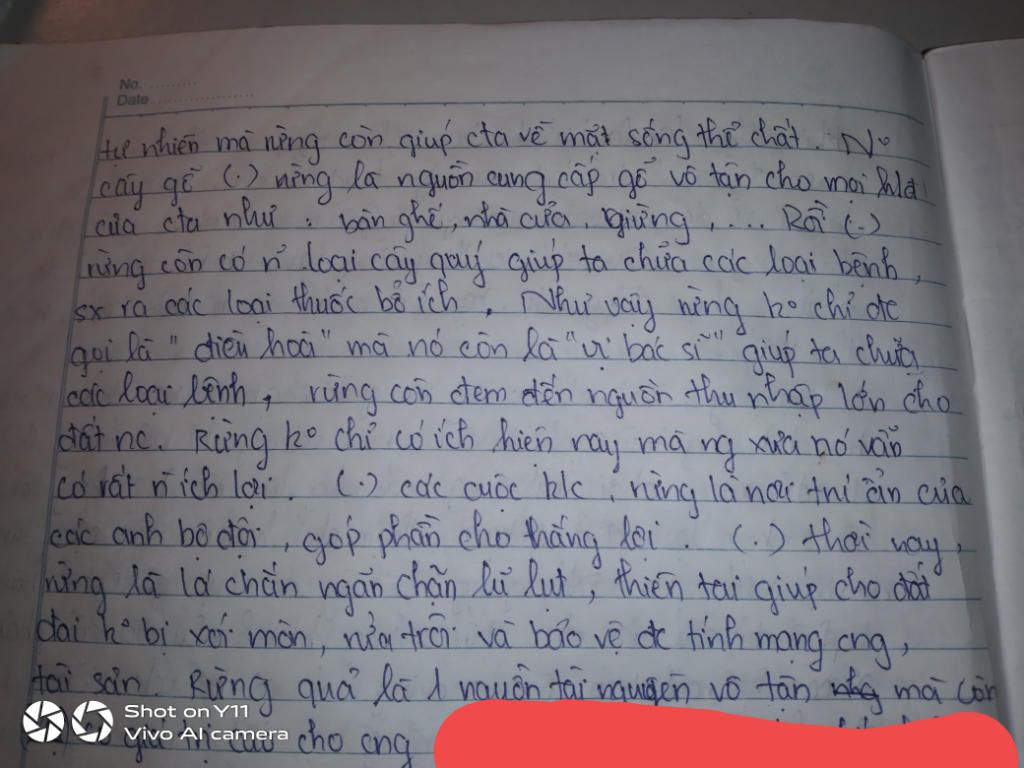 No.
Date
tự nhiên mà rừng còn giúp cta về mặt sống thể chất. N°
cây gỗ (.) rừng là nguồn cung cấp gỗ vô tận cho mọi
của cta như : bàn ghế, nhà cửa, giừng, .... Rồi (.)
rừng còn có n loại cây quý giúp ta chữa các loại bệnh,
sx ra các loại thuốc bổ ích. Như vậy rừng k° chỉ đc
gọi là "điều hoà" mà nó còn là "vị bác sĩ" giúp ta chữa
các loại bệnh, rừng còn đem đến nguồn thu nhập lớn cho
đất nc. Rừng k° chỉ có ích hiện nay mà ng xưa nó vẫn
có rất n ích lợi. (.) các cuộc k/c, rừng là nơi trí ẩn của
các anh bộ đội, góp phần cho thắng lợi. (.) thời nay,
rừng là lá chắn ngăn chặn lũ lụt, thiên tai giúp cho đất
đai k° bị xói mòn, rửa trôi và bảo vệ đc tính mạng cng,
tài sản. Rừng quả là 1 nguồn tài nguyên vô tận mà còn
có giá trị cao cho cng
Shot on Y11
Vivo AI camera